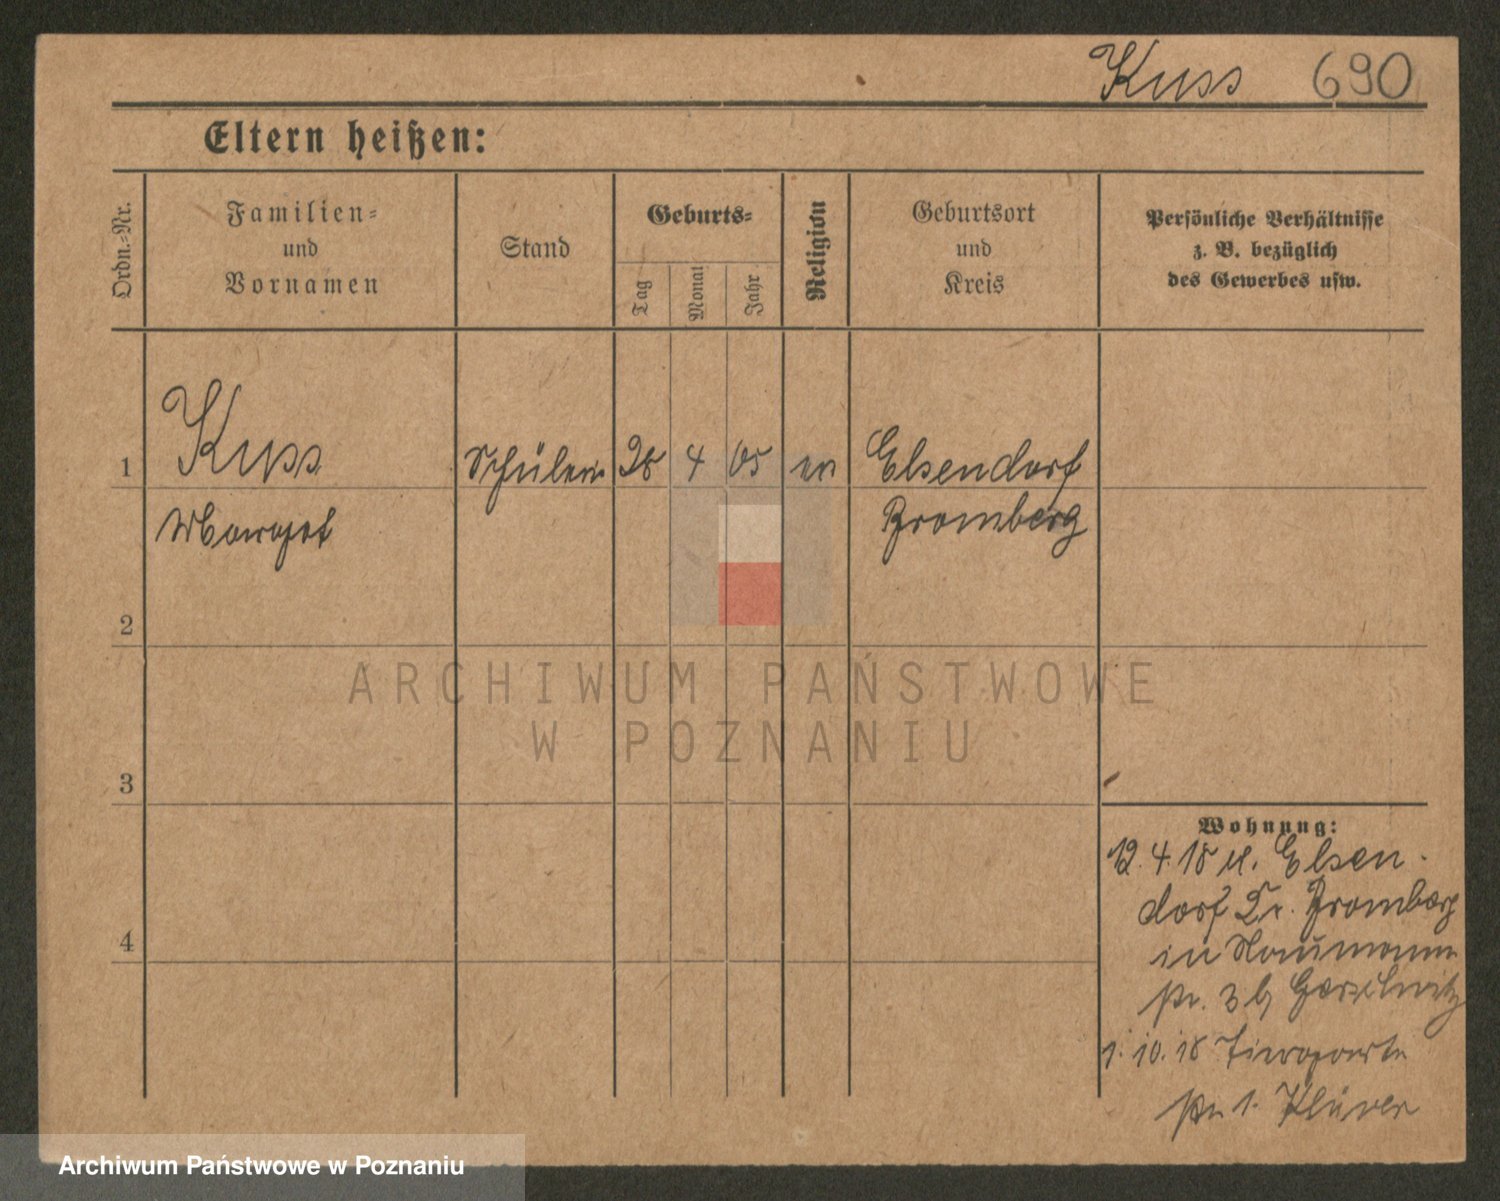 Kuss 690
Eltern heißen:
Ordn.-Nr.
Familien-
und
Vornamen
Stand
Geburts-
Tag
Monat
Jahr
Religion
Geburtsort
und
Kreis
Persönliche Verhältnisse
z. B. bezüglich
des Gewerbes usw.
1 Kuss Schülerin 28 4 05 ev Elsendorf
Margot Bromberg
2
ARCHIWUM PAŃSTWOWE
W POZNANIU
3
4
Wohnung:
12.4.18 v. Elsen-
dorf Kr. Bromberg
in Naumann
str. 3 b/
1.10.18
str 1. Klüver
Archiwum Państwowe w Poznaniu